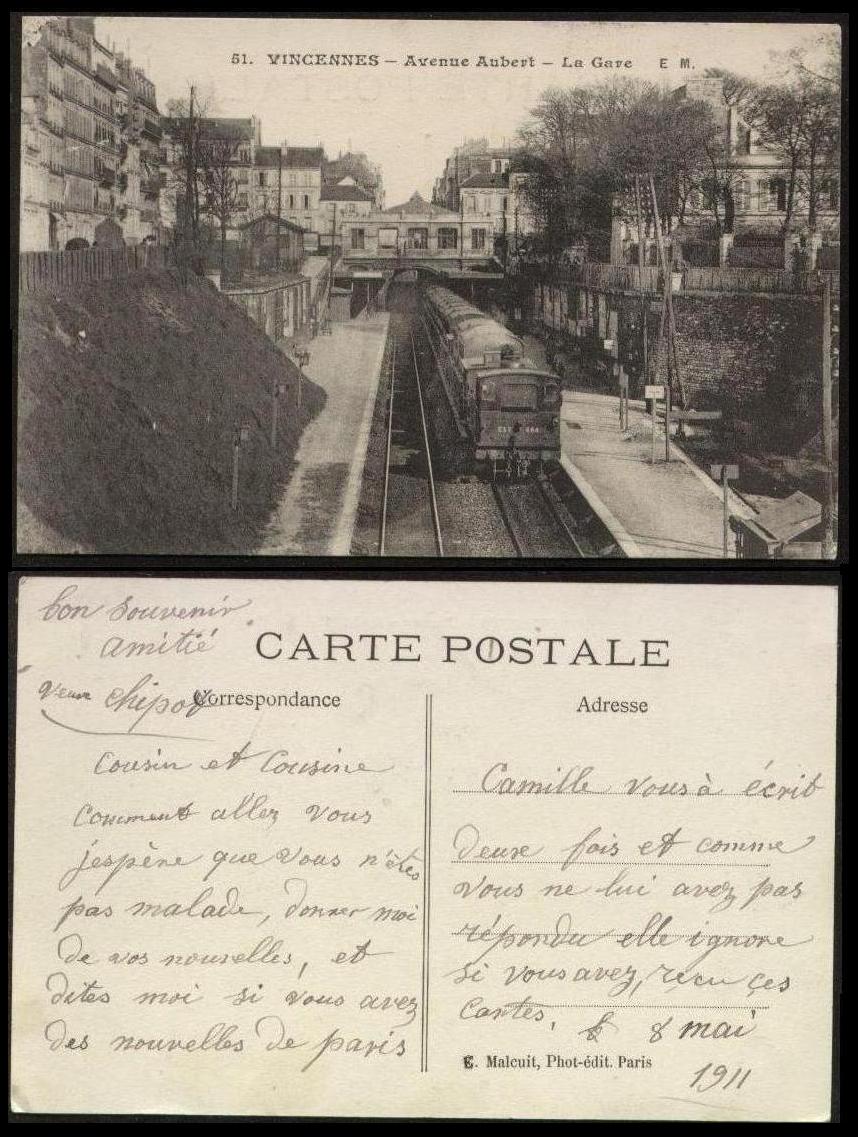 51. VINCENNES – Avenue Aubert – La Gare E M.
bon Souvenir
amitié
CARTE POSTALE
Veuve Chipot
Correspondance
Adresse
Cousin et Cousine
Comment allez vous
j'espère que vous n'êtes
pas malade, donner moi
de vos nouvelles, et
dites moi si vous avez
des nouvelles de paris
Camille vous à écrit
deux fois et comme
vous ne lui avez pas
répondu elle ignore
si vous avez, recu ces
Cartes,
8 mai
1911
E. Malcuit, Phot-édit. Paris